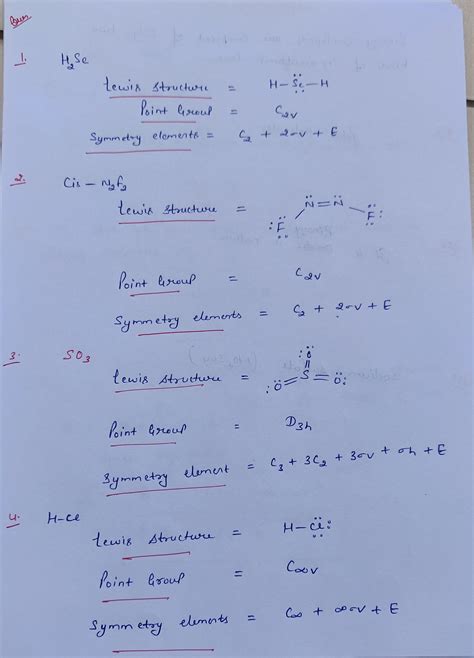 1. H₂Se
Lewis Structure = H–S̈e–H
Point Group = C₂ᵥ
Symmetry elements = C₂ + 2σv + E
2. Cis – N₂F₂
Lewis Structure = :F̈ N̈=N̈ F̈:
Point Group = C₂ᵥ
Symmetry elements = C₂ + 2σv + E
3. SO₃
:Ö
Lewis Structure = :Ö=S=Ö:
Point Group = D₃h
Symmetry element = C₃ + 3C₂ + 3σv + σh + E
4. H–Cl
Lewis Structure = H–C̈l:
Point Group = C∞v
Symmetry elements = C∞ + ∞σv + E